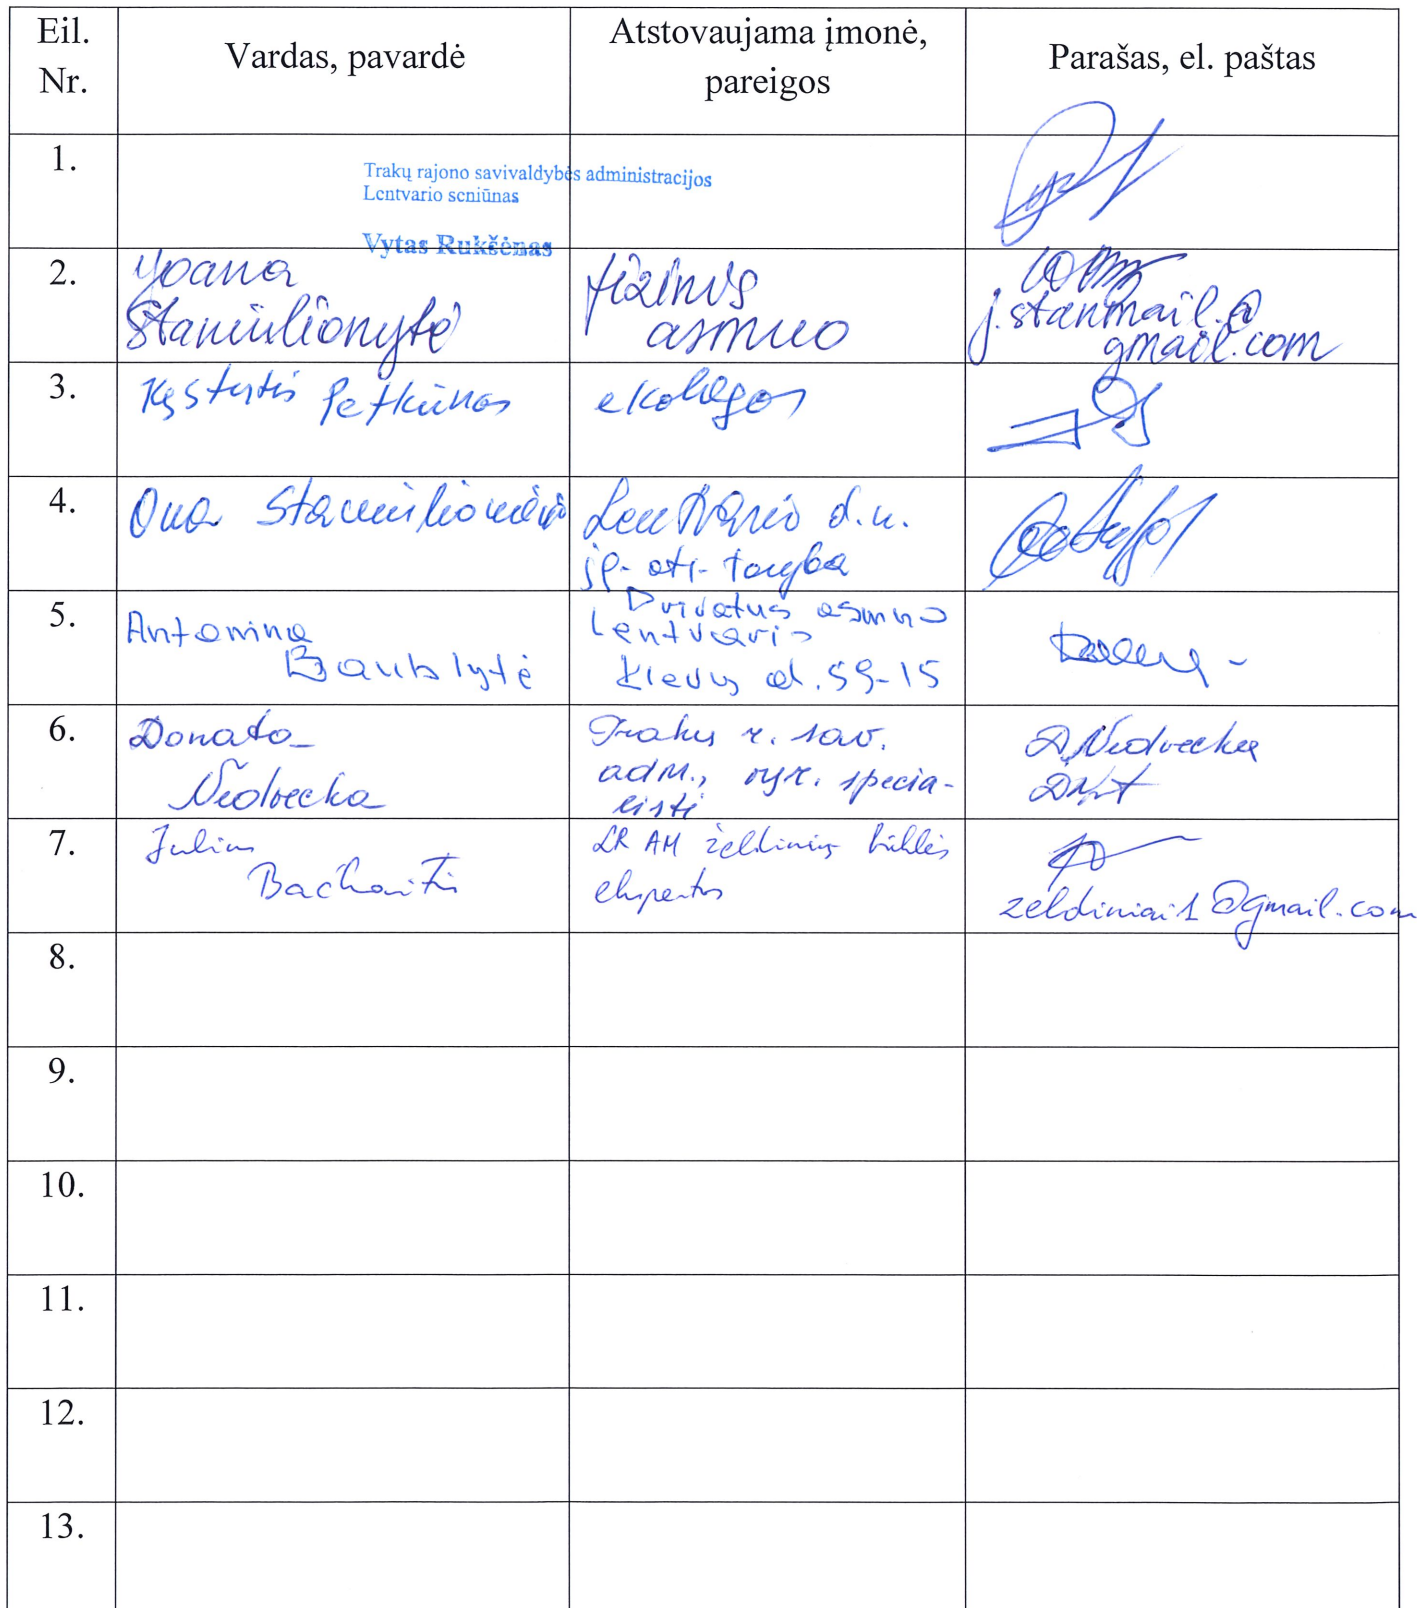 Eil. Nr.
Vardas, pavardė
Atstovaujama įmonė, pareigos
Parašas, el. paštas
1.
Trakų rajono savivaldybės administracijos
Lentvario seniūnas
Vytas Rukšėnas
2.
Joana
Staniulionytė
fizinis
asmuo
j.stanmail.@
gmail.com
3.
Kęstutis Petkūnas
ekologas
4.
Ona Staniulionienė
Lentvario d.n.
taryba
5.
Antanina
Baublytė
Privatus asmuo
Lentvaris
Klevų al. 59-15
6.
Donata
Nedvecka
Trakų r. sav.
adm., vyr. specia-
listė
D. Nedvecka
7.
Julius
Bačkaitis
LR AM želdinių būklės
ekspertas
zeldiniai1@gmail.com
8.
9.
10.
11.
12.
13.